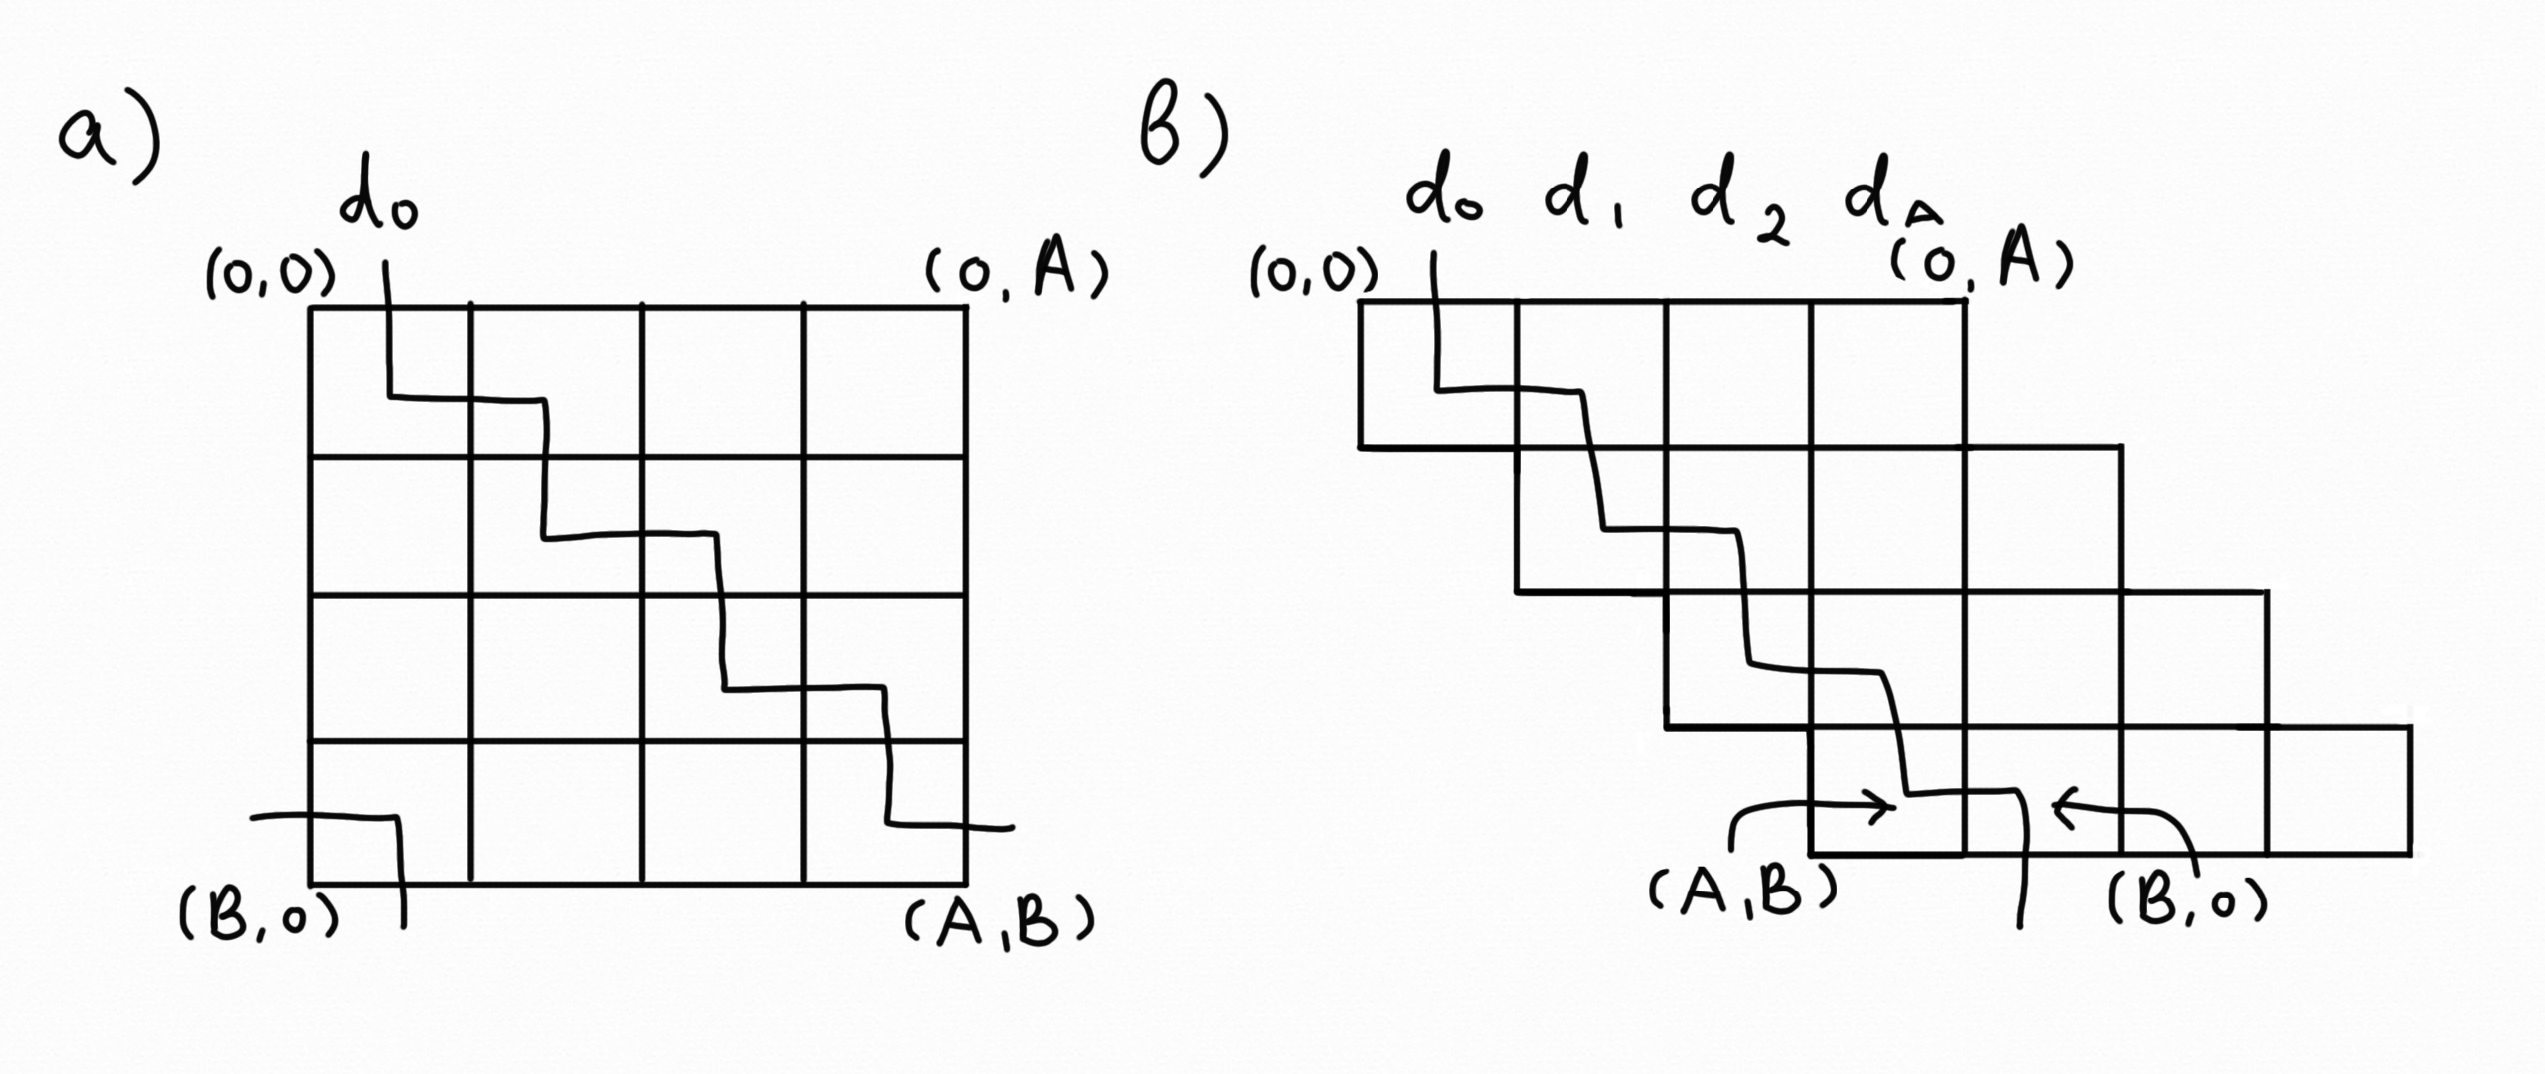 a)
d₀
(0,0) (0,A)
(B,0) (A,B)
b)
d₀ d₁ d₂ d_A
(0,0) (0,A)
(A,B) (B,0)